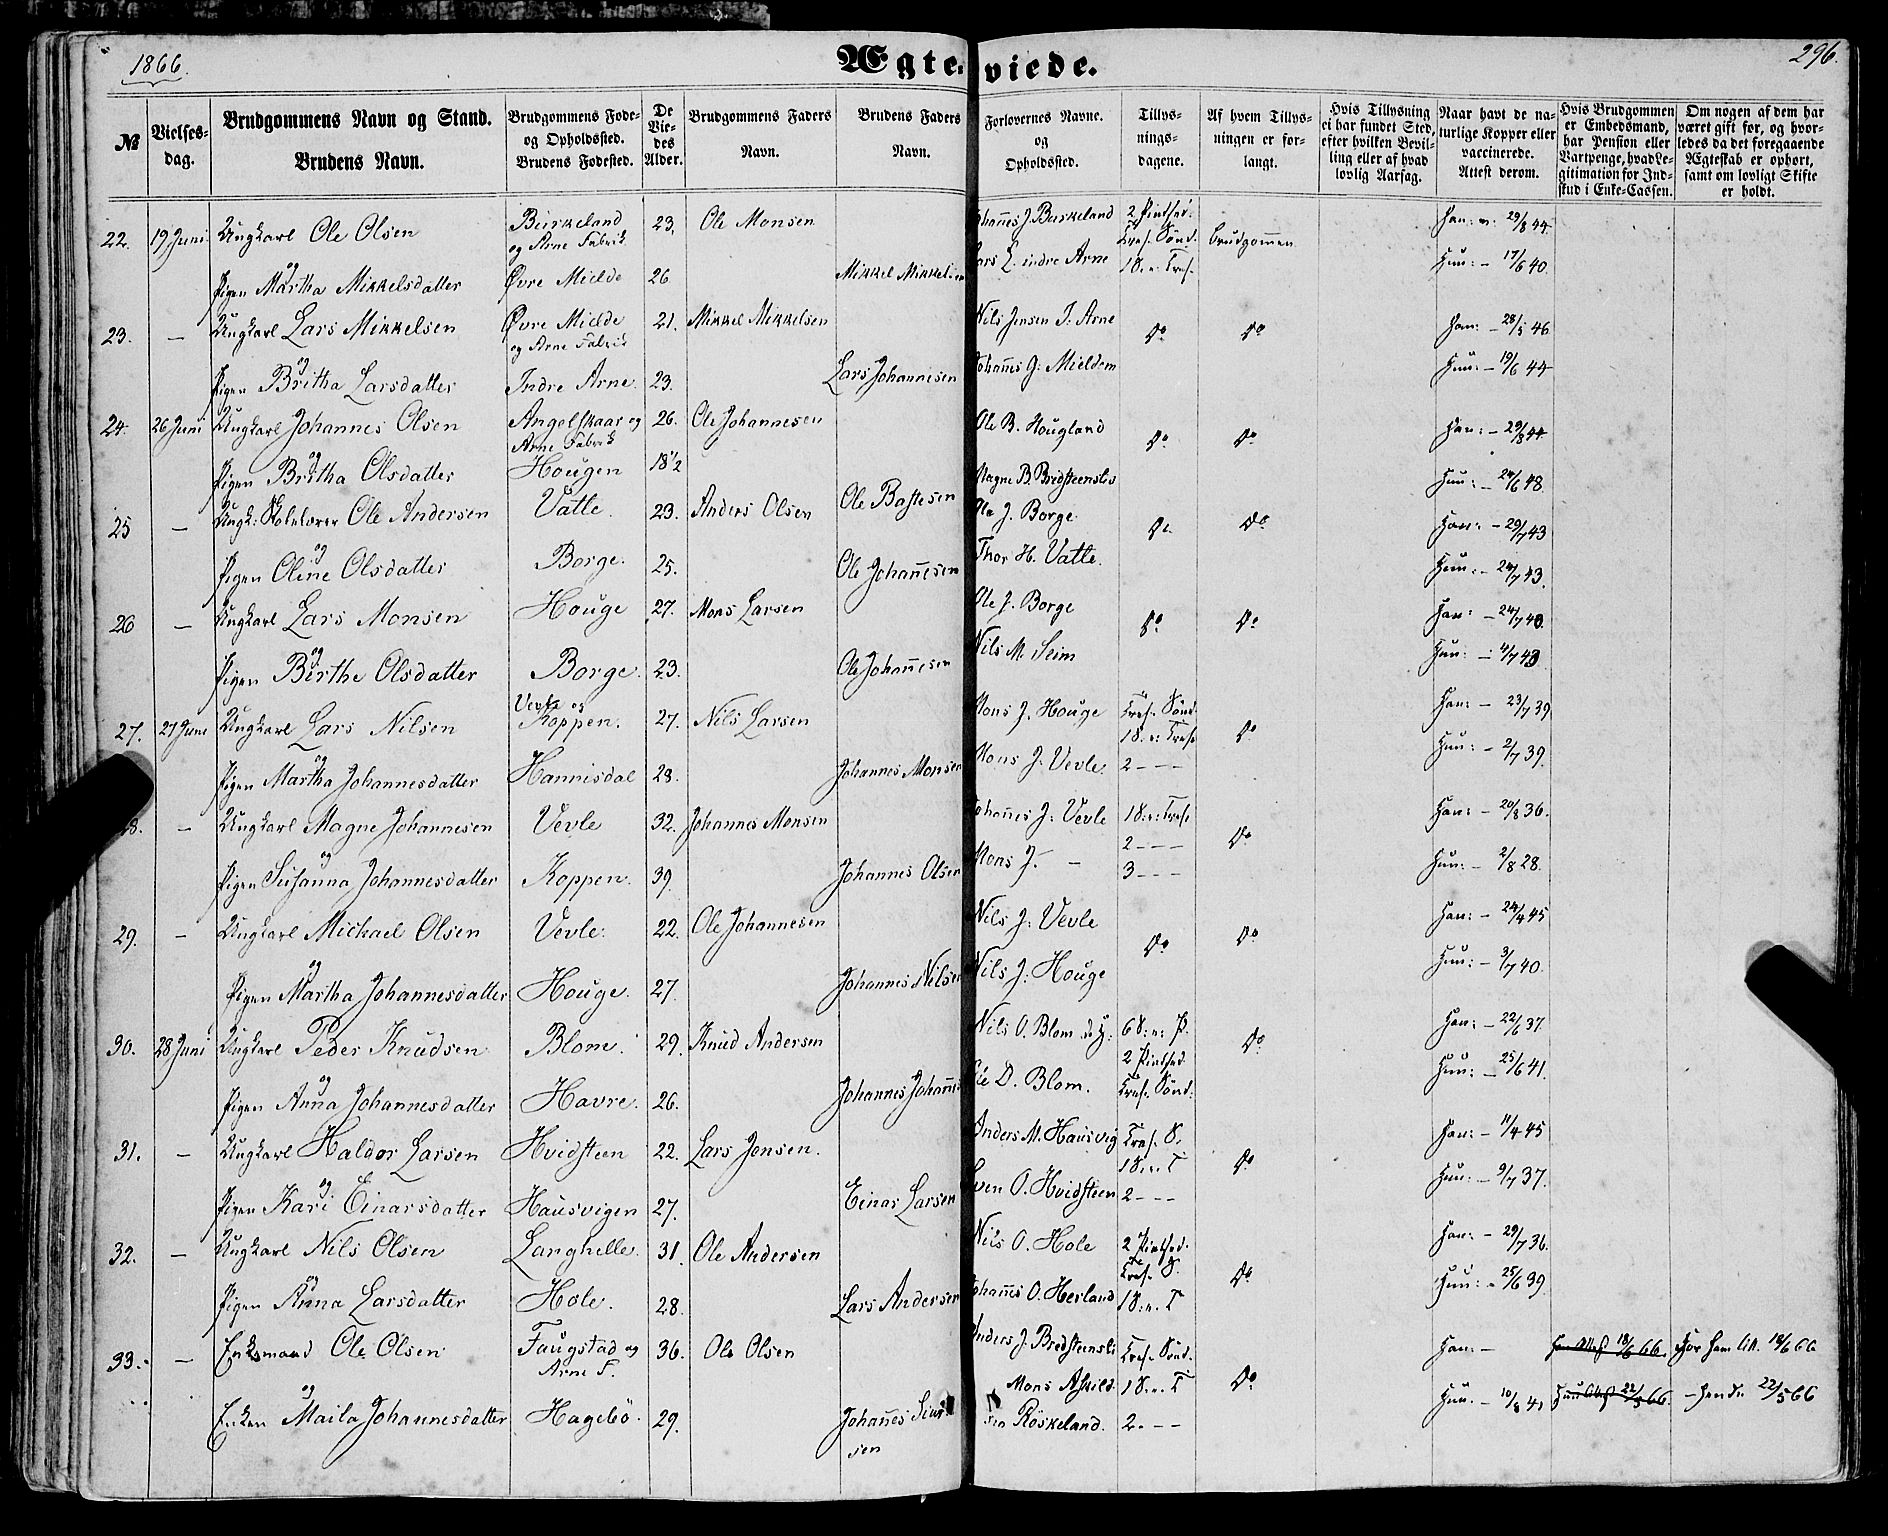 1866.
Ægteviede.
296.
№
Vielsesdag.
Brudgommens Navn og Stand. Brudens Navn.
Brudgommens Føde- og Opholdssted. Brudens Fødested.
De Viedes Alder.
Brudgommens Faders Navn.
Brudens Faders Navn.
Forlovernes Navne. og Opholdssted.
Tillysningsdagene.
Af hvem Tillysningen er forlangt.
Hvis Tillysning ei har fundet Sted, efter hvilken Bevilling eller af hvad lovlig Aarsag.
Naar havt de naturlige Kopper eller vaccinerede. Attest derom.
Hvis Brudgommen er Embedsmand, har Pension eller Vartpenge, hvad Legitimation for Indskud i Enke-Cassen.
Om nogen af dem har været gift før, og hvorledes da det foregaaende Ægteskab er ophørt, samt om lovligt Skifte er holdt.
22. 19 Juni Ungkarl Ole Olsen Birkeland og Arne Fabrik 23. Ole Monsen Johañes J. Birkeland 2 Pintsed. Tref. Sønd. Brudgommen Han: v. 29/8 44.
og Pigen Martha Mikkelsdatter Øvre Mielde 26 Mikkel Mikkelsen Lars L. indre Arne 1 S. e. Tref. Hun: – 17/6 40.
23. – Ungkarl Lars Mikkelsen Øvre Mielde og Arne Fabrik 21. Mikkel Mikkelsen Nils Jensen I. Arne Do Do Han: – 28/5 46
og Pigen Britha Larsdatter Indre Arne 23. Lars Johannesen Johañes G. Mieldem Hun: – 19/6 44
24. 26 Juni Ungkarl Johannes Olsen Angelskaar og Arne Fabrik 26. Ole Johannesen Ole B. Hougland Do Do Han: – 29/8 44.
og Pigen Britha Olsdatter Hougen 18 1/2 Ole Bastesen Magne B. Bredsteenslie Hun: – 24/6 48.
25 – Ungk: Skolelærer Ole Andersen Vatle. 23. Anders Olsen Ole J. Borge Do Do Han: – 29/7 43
og Pigen Oline Olsdatter Borge. 25. Ole Johañesen Thor H. Vatle. Hun: – 24/7 43.
26 – Ungkarl Lars Monsen Houge 27. Mons Larsen Ole J. Borge Do Do Han: – 24/7 40.
og Pigen Birthe Olsdatter Borge. 23. Ole Johañesen Nils M. Seim Hun: – 4/7 43.
27. 27 Juni Ungkarl Lars Nilsen Vevle og Koppen. 27. Nils Larsen Mons J. Houge Tref. Sønd. 1 S. e. Tref. Do Han: – 23/7 39
og Pigen Martha Johannesdatter Hannisdal 28. Johannes Monsen Mons J. Vevle. 2 – – – Hun: – 2/7 39.
28. – Ungkarl Magne Johannesen Vevle 32. Johannes Monsen Johañes J. Vevle 1 S. e. Tref. Do Han: – 20/8 36.
og Pigen Susanna Johannesdatter Koppen. 39. Johannes Olsen Mons J. – 2 – – – 3 – – – Hun: – 2/8 28.
29. – Ungkarl Michael Olsen Vevle. 22. Ole Johannesen Nils J. Vevle Do Do Han: – 24/4 45
og Pigen Martha Johannesdatter Houge. 27. Johannes Nilsen Nils J. Houge Hun: – 3/7 40.
30. 28 Juni Ungkarl Peder Knudsen Blom. 29. Knud Andersen Nils O. Blom 6 S. e. P. 2 Pintsed. Do Han: – 22/6 37.
og Pigen Anna Johannesdatter Havre. 26. Johannes Johañes D. Blom. Tref. Sønd. Hun: – 25/6 41.
31. – Ungkarl Haldor Larsen Hvidsteen 22. Lars Jensen. Anders M. Hausvig Tref. S. 1 S. e. T Do Han: – 11/4 45
og Pigen Kari Einarsdatter Hausvigen 27. Einar Larsen Sven O. Hvidsteen 2 – – – Hun: – 9/7 37.
32. – Ungkarl Nils Olsen Langhelle. 31. Ole Andersen Nils O. Hole 2 Pintsed. Tref. S. Do Han: – 29/7 36.
og Pigen Anna Larsdatter Hole. 28. Lars Andersen Johañes O. Herland 1 S. e. T Hun: – 25/6 39.
33. – Enkemand Ole Olsen Faugstad og Arne F. 36. Ole Olsen Anders J. Bredsteensli Tref. Sønd. Do Han: – Han Attest 18/6 66. For ham Att. 18/6 66
og Enken Maila Johannesdatter Hagebø. 29. Johañes Sen Mons Askild-sen Røskeland. 1 S. e. T 2. – – Hun. – 10/8 41 Hun Attest 22/5 66. – Hende 22/5 66